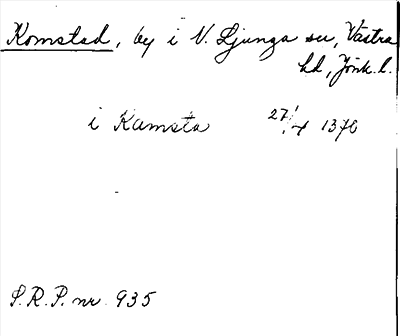 Komstad, by i N. Ljunga sn, Västra
hd, Jönk. l.
i Kamsta 27/4 1370
S.R.P. nr 935